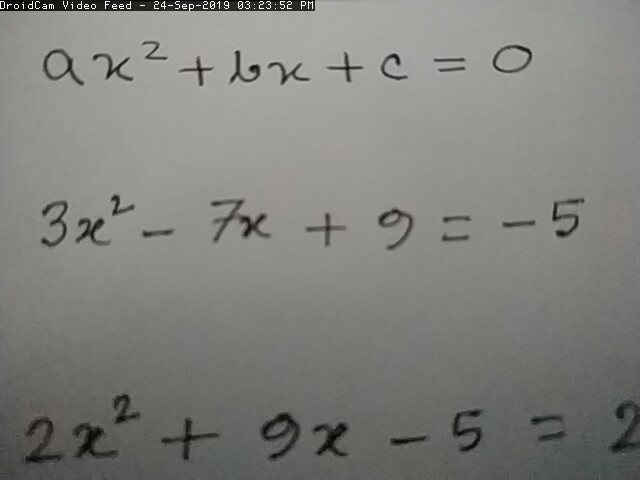 DroidCam Video Feed - 24-Sep-2019 03:23:52 PM
ax² + bx + c = 0
3x² - 7x + 9 = -5
2x² + 9x - 5 = 2